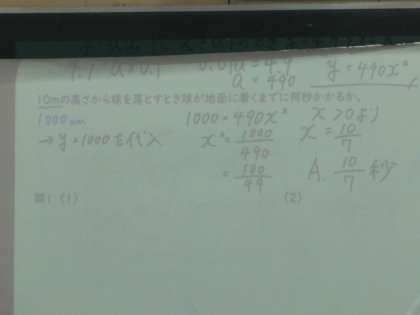 0.01a = 4.9
a = 490
y = 490x²
10mの高さから球を落とすとき球が地面に着くまでに何秒かかるか。
1000cm
→ y = 1000を代入
1000 = 490x²
x² = 1000/490
= 100/49
x > 0より
x = 10/7
A. 10/7 秒
(1)
(2)